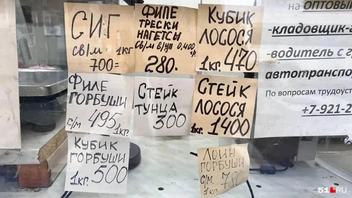 СИГ
СВ/М 1КГ.
700=
ФИЛЕ
ТРЕСКИ
НАГЕТСЫ
280.
КУБИК
ЛОСОСЯ
1КГ. 470
ФИЛЕ
ГОРБУШИ
С/М 495 1КГ.
СТЕЙК
ТУНЦА
300
СТЕЙК
ЛОСОСЯ
1КГ. 1400
КУБИК
ГОРБУШИ
1КГ. 500
ГОРБУШИ
С/М
1КГ.
на ОПТОВЫ
-кладовщик-
-водитель с г
автотранспо
По вопросам трудоуст
+7-921-2
51.RU